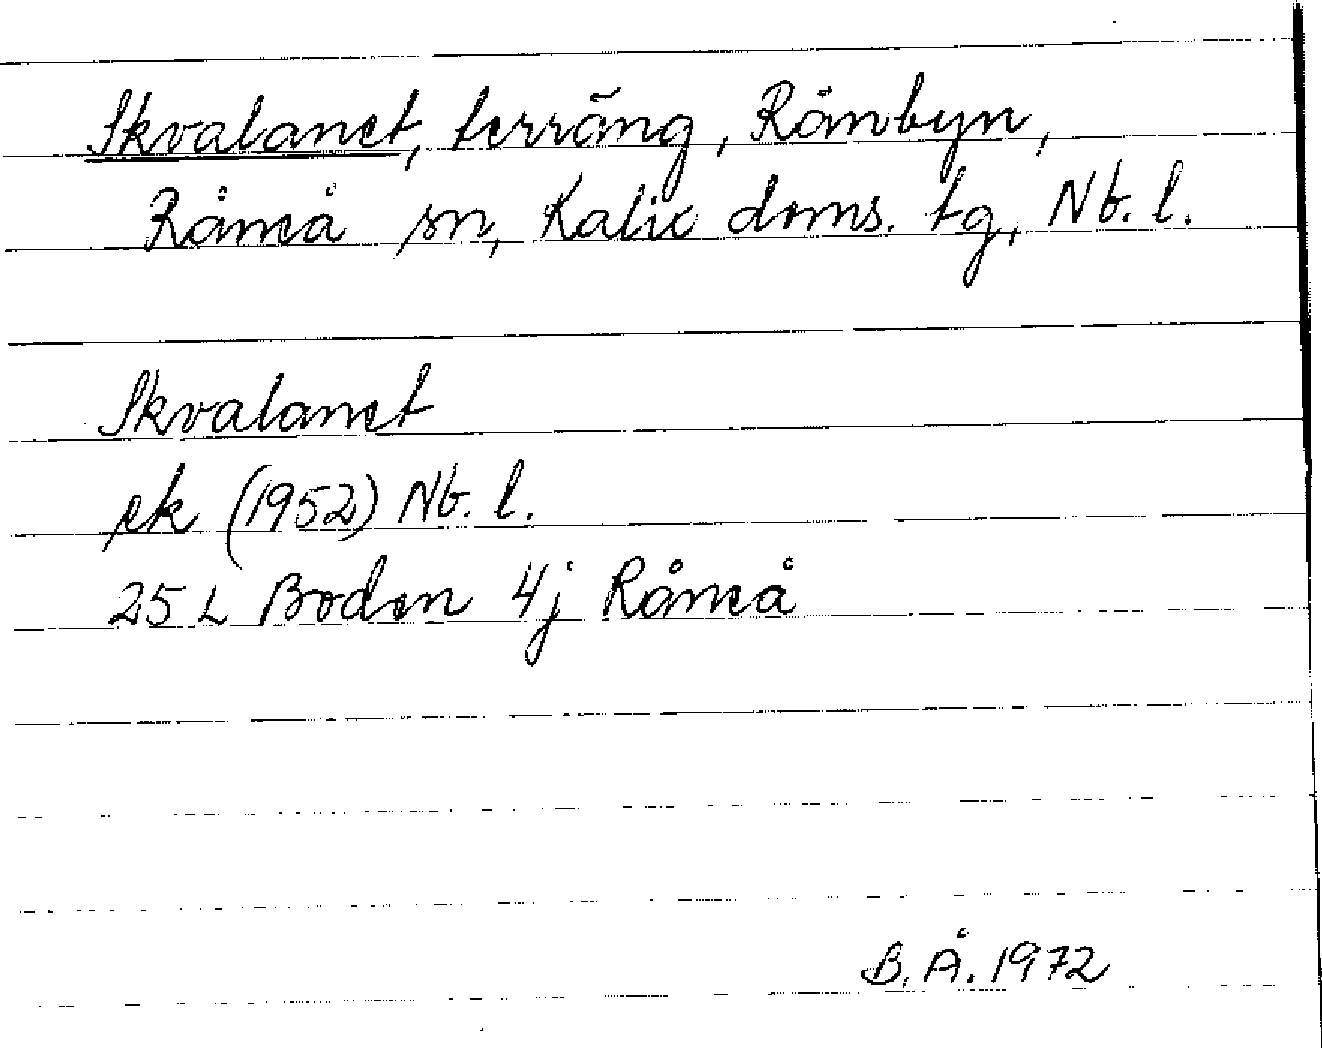 Skvalanet, terräng, Rånbyn,
Råneå sn, Kalix doms. tg, Nb. l.
Skvalanet
ek (1952) Nb. l.
25 L Boden 4j Råneå
B. Å. 1972